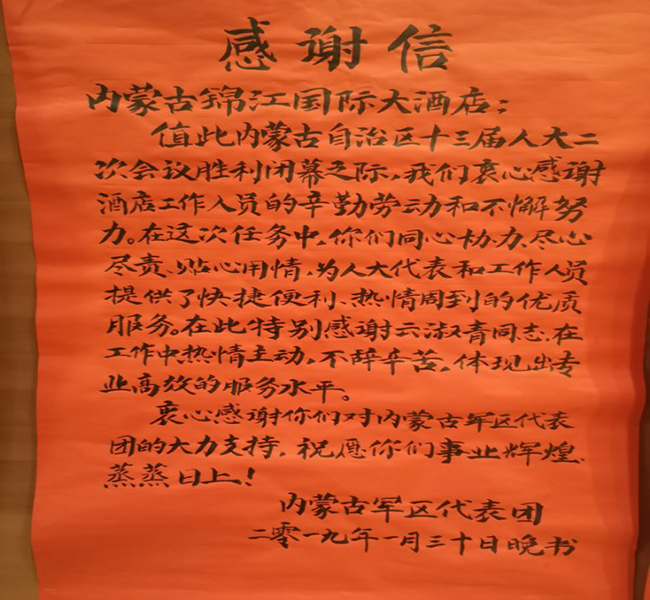 感谢信
内蒙古锦江国际大酒店：
值此内蒙古自治区十三届人大二
次会议胜利闭幕之际，我们衷心感谢
酒店工作人员的辛勤劳动和不懈努
力。在这次任务中，你们同心协力、尽心
尽责、贴心用情，为人大代表和工作人员
提供了快捷便利、热情周到的优质
服务。在此特别感谢云淑青同志，在
工作中热情主动，不辞辛苦，体现出专
业高效的服务水平。
衷心感谢你们对内蒙古军区代表
团的大力支持，祝愿你们事业辉煌、
蒸蒸日上！
内蒙古军区代表团
二零一九年一月三十日晚书